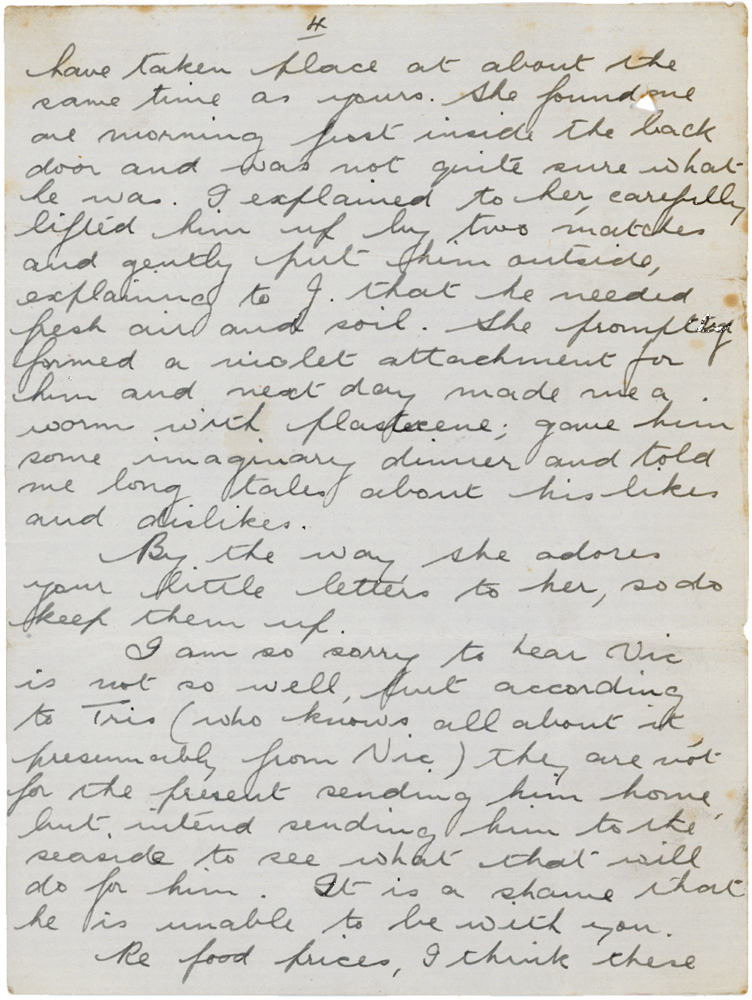 4
have taken place at about the
same time as yours. She found me
one morning just inside the back
door and was not quite sure what
he was. I explained to her, carefully
lifted him up by two matches
and gently put him outside,
explaining to J. that he needed
fresh air and soil. She promptly
formed a violet attachment for
him and next day made me a
worm with plastecene; gave him
some imaginary dinner and told
me long tales about his likes
and dislikes.
By the way she adores
your little letters to her, so do
keep them up.
I am so sorry to hear Vic
is not so well, but according
to Tris (who knows all about it
presumably from Vic) they are not
for the present sending him home,
but intend sending him to the
seaside to see what that will
do for him. It is a shame that
he is unable to be with you.
Re food prices, I think these